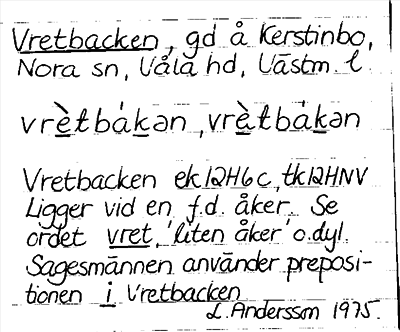 Vretbacken, gd å Kerstinbo,
Nora sn, Våla hd, Västm. l
vrètbákən, vrètbákən
Vretbacken ek 12H6c, tk 12HNV
Ligger vid en f.d. åker. Se
ordet vret, 'liten åker' o.dyl.
Sagesmannen använder preposi-
tionen i Vretbacken
L. Andersson 1975.